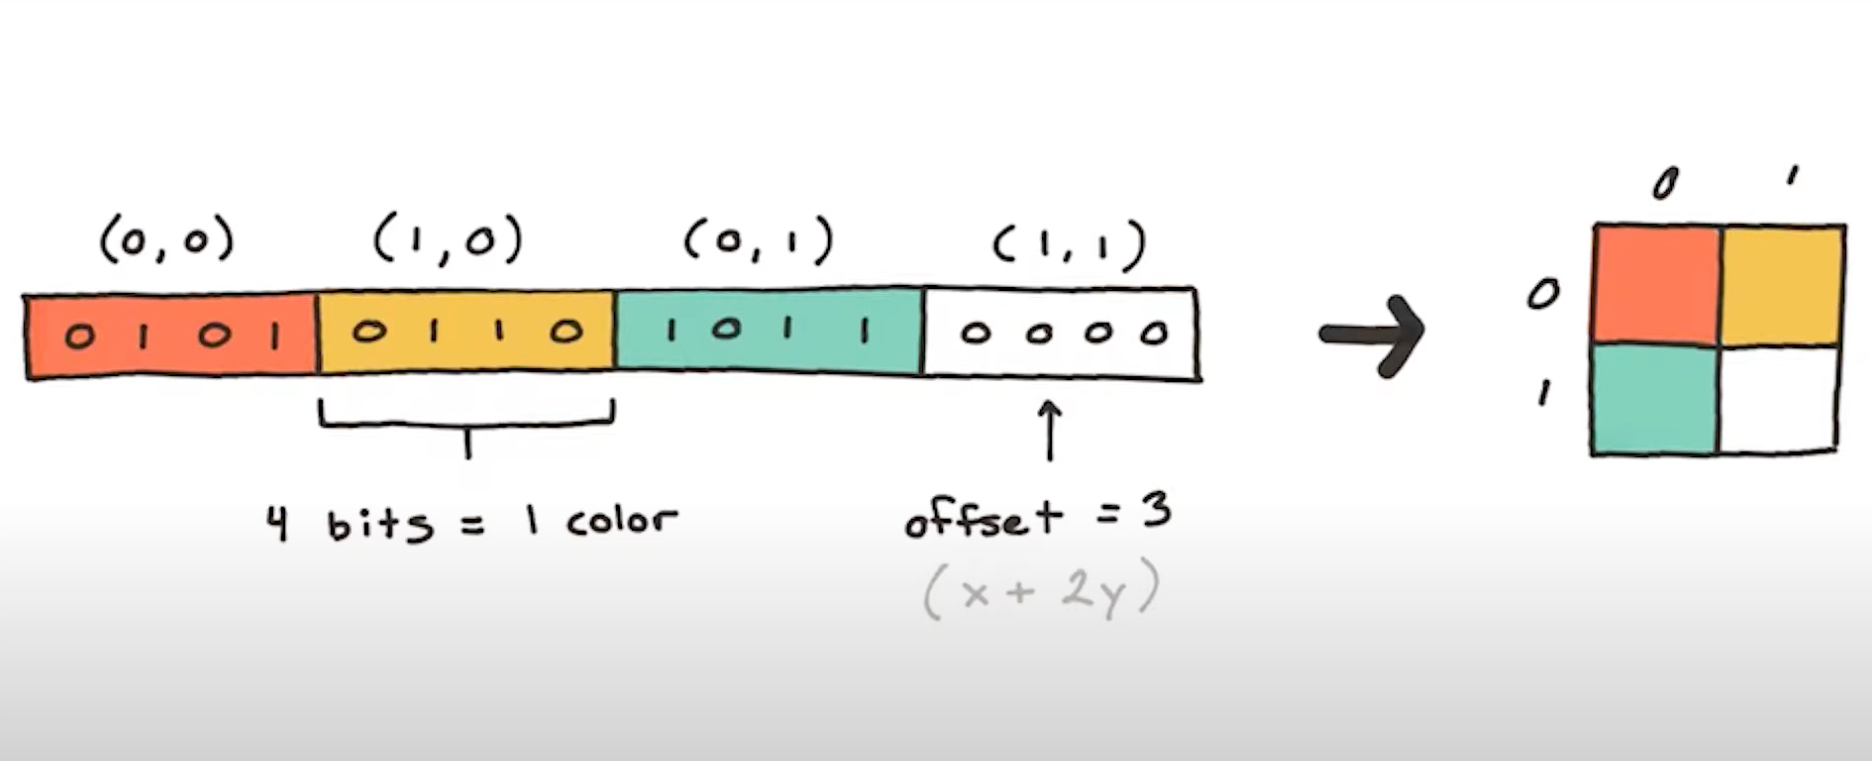 (0,0) (1,0) (0,1) (1,1)
0 1 0 1 0 1 1 0 1 0 1 1 0 0 0 0
4 bits = 1 color
offset = 3
(x + 2y)
0 1
0
1